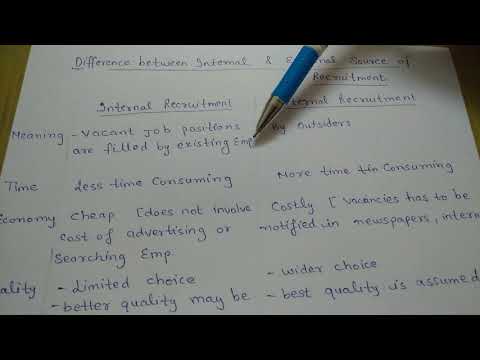 Difference between Internal & External Source of
Recruitment
Internal Recruitment
External Recruitment
Meaning - Vacant job positions
are filled by existing Emp
By outsiders
Time less time Consuming
More time Consuming
Economy cheap [does not involve
cost of advertising or
Searching Emp
Costly [Vacancies has to be
notified in newspapers, intern
ality - Limited choice
- better quality may be
- wider choice
- best quality is assumed